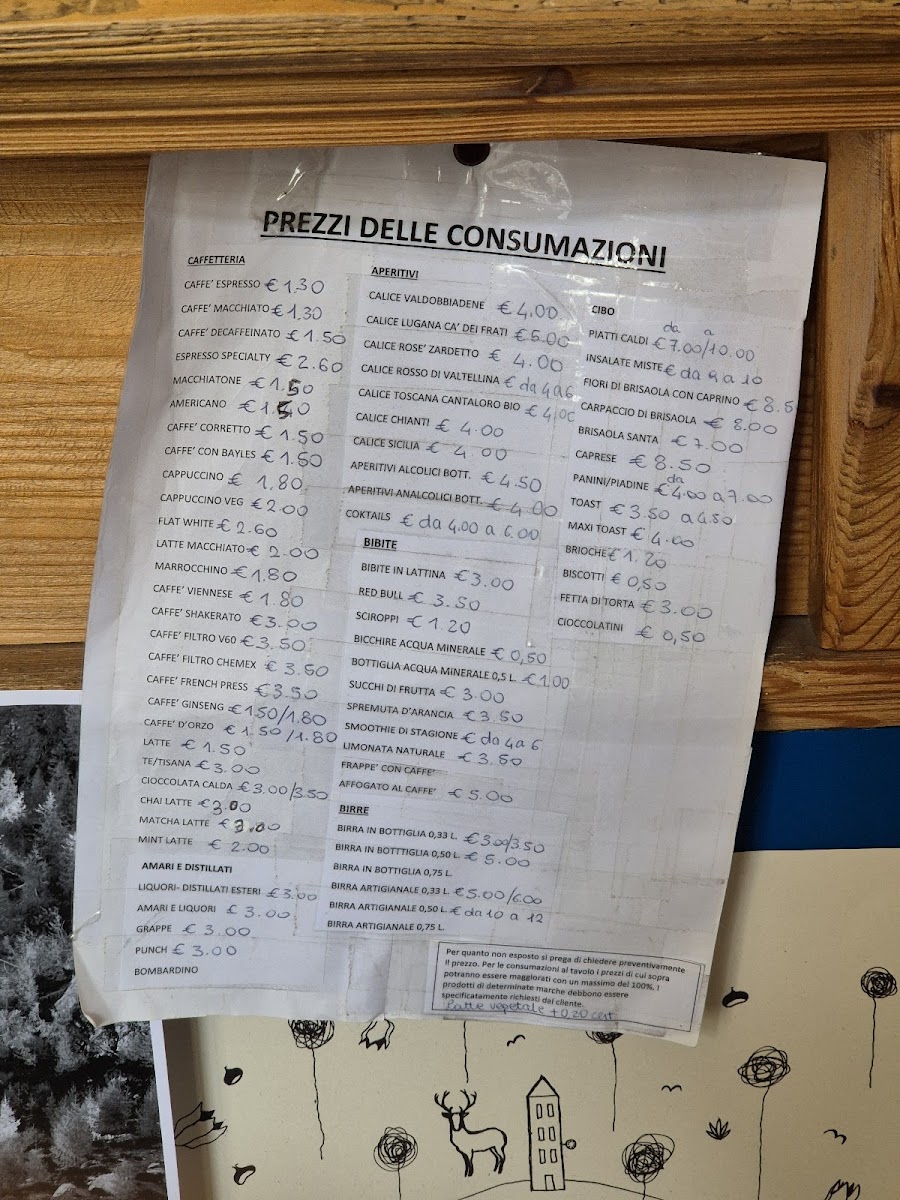 PREZZI DELLE CONSUMAZIONI
CAFFETTERIA
CAFFE' ESPRESSO € 1,30
CAFFE' MACCHIATO € 1.30
CAFFE' DECAFFEINATO € 1.50
ESPRESSO SPECIALTY € 2.60
MACCHIATONE € 1.50
AMERICANO € 1.50
CAFFE' CORRETTO € 1.50
CAFFE' CON BAYLES € 1.50
CAPPUCCINO € 1.80
CAPPUCCINO VEG € 2.00
FLAT WHITE € 2.60
LATTE MACCHIATO € 2.00
MARROCCHINO € 1.80
CAFFE' VIENNESE € 1.80
CAFFE' SHAKERATO € 3.00
CAFFE' FILTRO V60 € 3.50
CAFFE' FILTRO CHEMEX € 3.50
CAFFE' FRENCH PRESS € 3.50
CAFFE' GINSENG € 1.50/1.80
CAFFE' D'ORZO € 1.50/1.80
LATTE € 1.50
TE/TISANA € 3.00
CIOCCOLATA CALDA € 3.00/3.50
CHAI LATTE € 3.00
MATCHA LATTE € 3.00
MINT LATTE € 2.00
AMARI E DISTILLATI
LIQUORI- DISTILLATI ESTERI € 3.00
AMARI E LIQUORI £ 3.00
GRAPPE € 3.00
PUNCH € 3.00
BOMBARDINO
APERITIVI
CALICE VALDOBBIADENE € 4.00
CALICE LUGANA CA' DEI FRATI € 5.00
CALICE ROSE' ZARDETTO € 4.00
CALICE ROSSO DI VALTELLINA € da 4 a 6
CALICE TOSCANA CANTALORO BIO € 4,00
CALICE CHIANTI € 4.00
CALICE SICILIA € 4.00
APERITIVI ALCOLICI BOTT. € 4.50
APERITIVI ANALCOLICI BOTT. € 4.00
COKTAILS € da 4.00 a 6.00
BIBITE
BIBITE IN LATTINA € 3.00
RED BULL € 3.50
SCIROPPI € 1.20
BICCHIRE ACQUA MINERALE € 0,50
BOTTIGLIA ACQUA MINERALE 0,5 L. € 1.00
SUCCHI DI FRUTTA € 3.00
SPREMUTA D'ARANCIA € 3.50
SMOOTHIE DI STAGIONE € da 4 a 6
LIMONATA NATURALE € 3.50
FRAPPE' CON CAFFE'
AFFOGATO AL CAFFE' € 5.00
BIRRE
BIRRA IN BOTTIGLIA 0,33 L. € 3.00/3.50
BIRRA IN BOTTTIGLIA 0,50 L. € 5.00
BIRRA IN BOTTIGLIA 0,75 L.
BIRRA ARTIGIANALE 0,33 L. € 5.00/6.00
BIRRA ARTIGIANALE 0,50 L. € da 10 a 12
BIRRA ARTIGIANALE 0,75 L.
CIBO
da a
PIATTI CALDI € 7.00/10.00
INSALATE MISTE € da 9 a 10
FIORI DI BRISAOLA CON CAPRINO € 8.5
CARPACCIO DI BRISAOLA € 8.00
BRISAOLA SANTA € 7.00
CAPRESE € 8.50
da
PANINI/PIADINE € 4.00 a 7.00
TOAST € 3.50 a 4.50
MAXI TOAST € 4.00
BRIOCHE € 1.20
BISCOTTI € 0,50
FETTA DI TORTA € 3.00
CIOCCOLATINI € 0,50
Per quanto non esposto si prega di chiedere preventivamente
Il prezzo. Per le consumazioni al tavolo i prezzi di cui sopra
potranno essere maggiorati con un massimo del 100%. I
prodotti di determinate marche debbono essere
specificatamente richiesti dal cliente.
Latte vegetale +0.20 cent